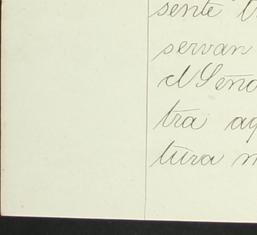 sente
servan
el Seno
tra aq
tura